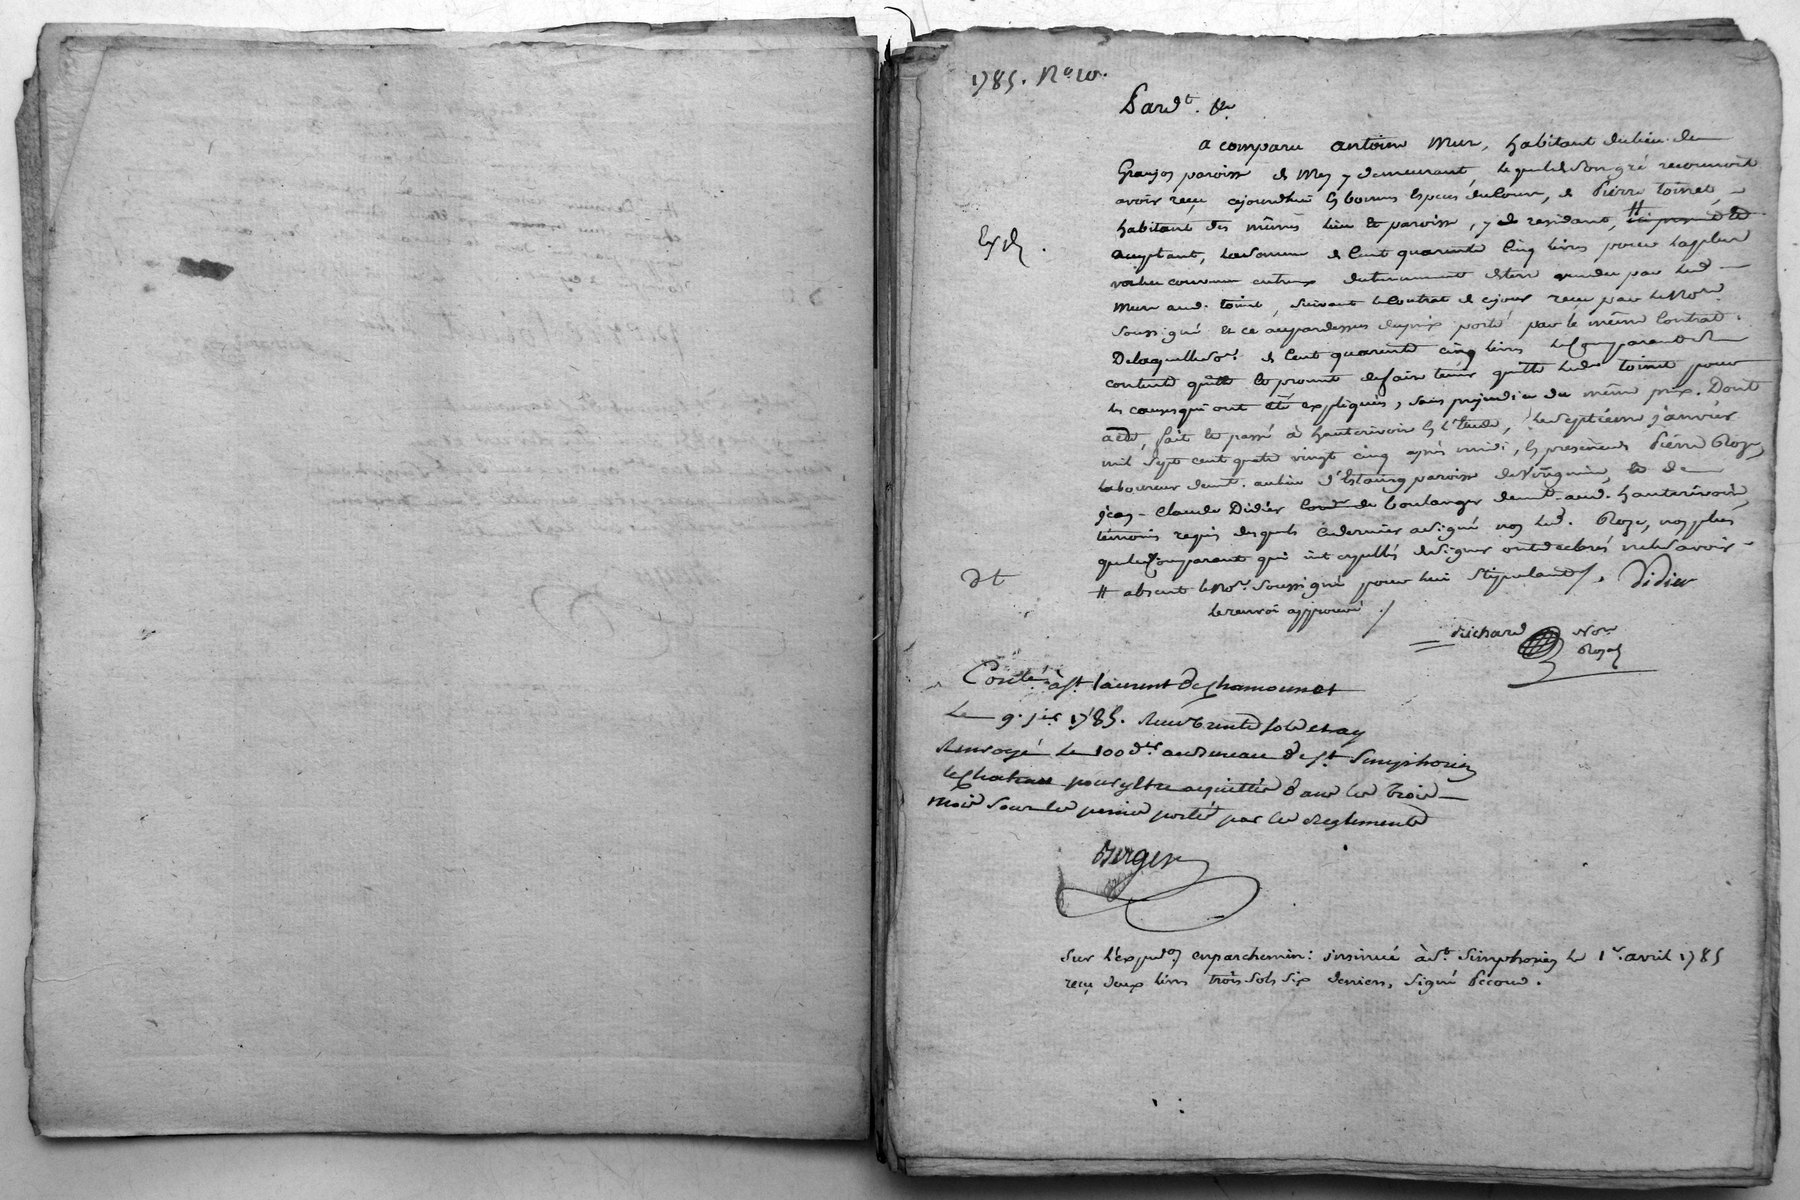 1785. N.º 10.
Pardt. &a
a comparu antoine Mure, habitant du lieu de
Granjon paroisse de Mey y demeurant, lequel de Son gré reconnoit
avoir reçu ajourdhui En bonnes Especes du Cour, de Pierre toinet,
habitant des mêmes lieu Et paroisse, y de residant, #
Exp.
acceptant, la Somme de Cent quarante Cinq livres pour la plus
value convenue entreux du tennement de terre vendu par led.
Mure aud. toinet, suivant le Contrat de cejour reçu par le Nore.
Soussigné Et ce aupardessus du prix porté par le même Contrat.
De laquelle Some. de Cent quarante cinq livres led. Comparant Se
contente quitte Et promet de faire tenir quitte led. toinet pour
les causes qui ont Eté expliquées, Sans prejudice du même prix. Dont
acte, fait Et passé à hauterivoire En l'Etude, le Septième janvier
mil Sept cent quatre vingt cinq après midi, En presence de Pierre Roze,
laboureur demt. au lieu d'Estaing paroisse de Virigneu, Et de
jean-Claude Didier boulanger demt. aud. hauterivoire,
témoins requis desquels Ce dernier a Signé non led. Roze, non plus
que le Comparant qui interpellés de Signer ont declarés ne le Savoir
dt
# absent le Nore. Soussigné pour lui Stipulant /. Didier
le renvoi approuvé ./
Richard Nore
Royal
Contlé. à St. laurent de Chamousset
Le 9. jer 1785. Reçu trente Sols et ay
Renvoyé le 100 der. au Bureau de St. Simphorien
le Chateau pour y Etre acquittée dans les trois
mois Sous les peines portées par les Reglements
Berger
Sur l'expedon. en parchemin: insinué à St. Simphorien le 1er. avril 1785
reçu deux livres trois Sols Six deniers, Signé Pecoud.